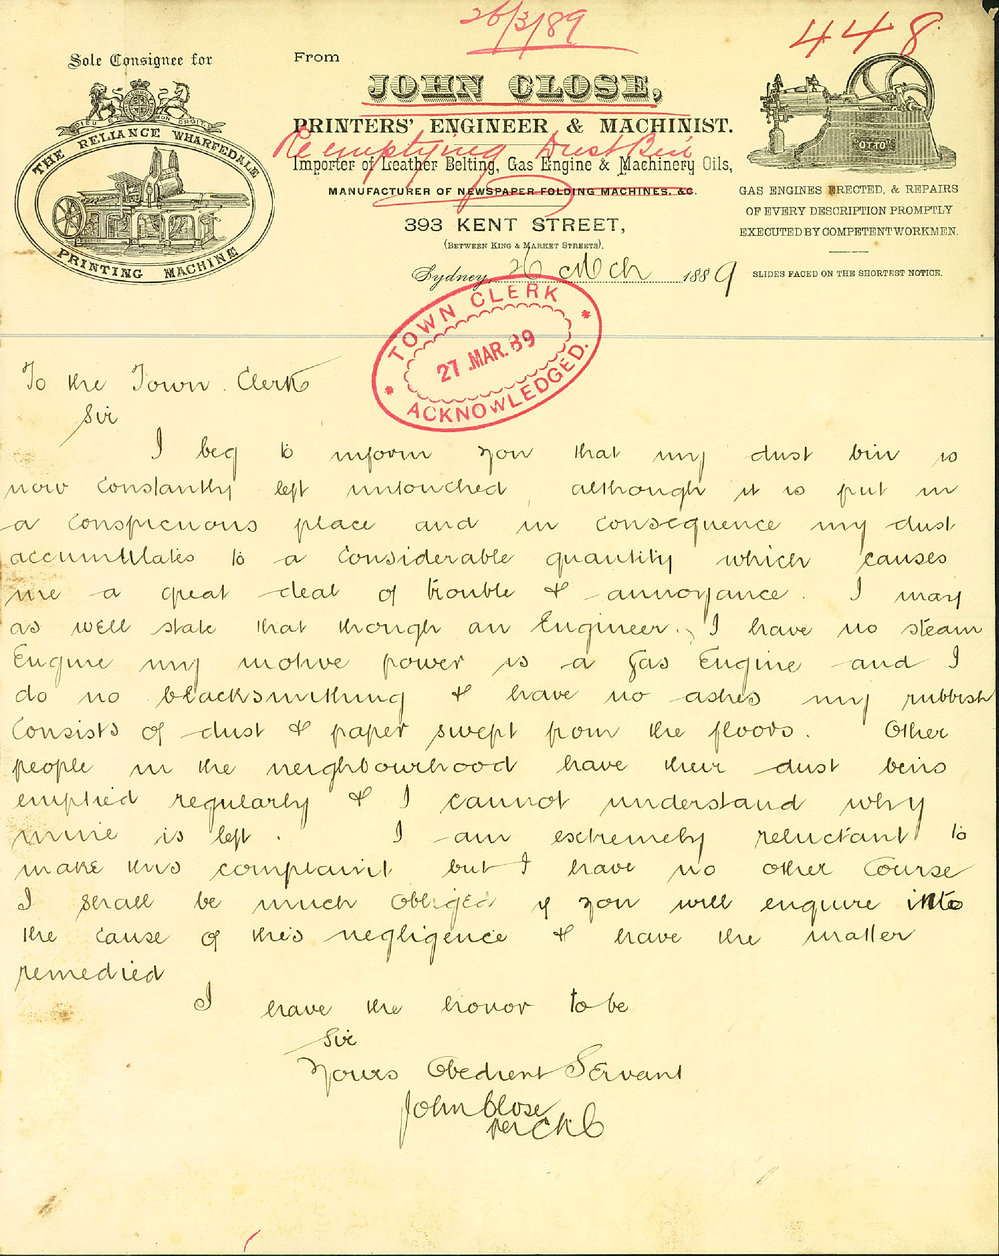 26/3/89
448
Sole Consignee for
From
JOHN CLOSE,
PRINTERS' ENGINEER & MACHINIST.
Re emptying Dust Bin
Importer of Leather Belting, Gas Engine & Machinery Oils,
MANUFACTURER OF NEWSPAPER FOLDING MACHINES, &C.
393 KENT STREET,
(BETWEEN KING & MARKET STREETS),
Sydney, 26 Mch 1889
THE RELIANCE WHARFEDALE
PRINTING MACHINE
"OTTO"
GAS ENGINES ERECTED, & REPAIRS
OF EVERY DESCRIPTION PROMPTLY
EXECUTED BY COMPETENT WORKMEN.
SLIDES FACED ON THE SHORTEST NOTICE.
TOWN CLERK
27 .MAR. 89
ACKNOWLEDGED.
To the Town Clerk
Sir
I beg to inform you that my dust bin is
now constantly left untouched, although it is put in
a conspicuous place and in consequence my dust
accumulates to a considerable quantity which causes
me a great deal of trouble & annoyance. I may
as well state that though an Engineer, I have no steam
Engine my motive power is a Gas Engine and I
do no blacksmithing & have no ashes my rubbish
consists of dust & paper swept from the floors. Other
people in the neighbourhood have their dust bins
emptied regularly & I cannot understand why
mine is left. I am extremely reluctant to
make this complaint but I have no other course
I shall be much obliged if you will enquire into
the cause of this negligence & have the matter
remedied
I have the honor to be
Sir
Yours Obedient Servant
John Close
per CKC